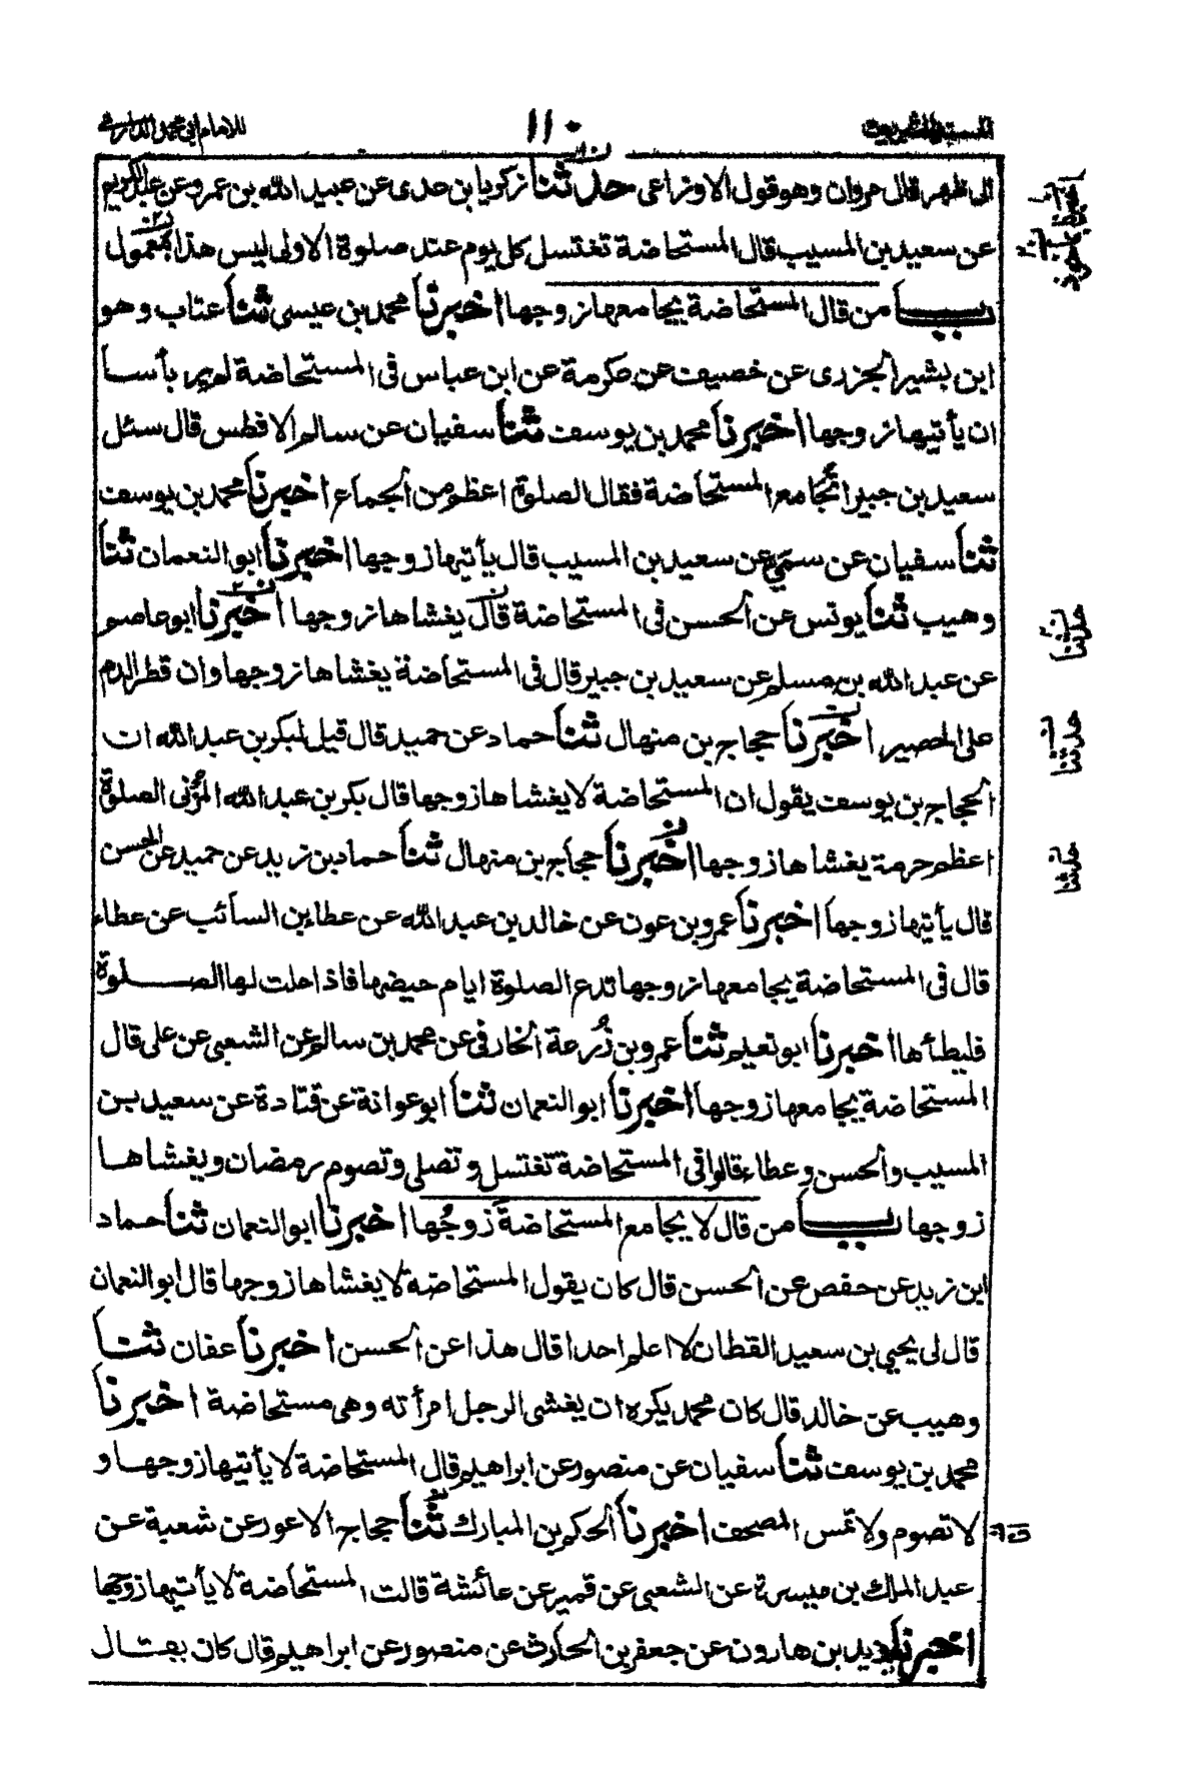 المسند الشريف
١١٠
للامام ابى محمد الدارمى
الى ظهر قال مروان وهو قول الاوزاعى حدثنا زكريا بن عدى عن عبيد الله بن عمرو عن عبد الكريم
عن سعيد بن المسيب قال المستحاضة تغتسل كل يوم عند صلوة الاولى ليس هذا بمعمول
باب من قال المستحاضة يجامعها زوجها اخبرنا محمد بن عيسى ثنا عتاب وهو
ابن بشير الجزرى عن خصيف عن عكرمة عن ابن عباس فى المستحاضة لم ير بأسا
ان يأتيها زوجها اخبرنا محمد بن يوسف ثنا سفيان عن سالم الافطس قال سئل
سعيد بن جبير اتُجامع المستحاضة فقال الصلوة اعظم من الجماع اخبرنا محمد بن يوسف
ثنا سفيان عن سمى عن سعيد بن المسيب قال يأتيها زوجها اخبرنا ابو النعمان ثنا
وهيب ثنا يونس عن الحسن فى المستحاضة قال يغشاها زوجها اخبرنا ابو عاصم
عن عبد الله بن مسلم عن سعيد بن جبير قال فى المستحاضة يغشاها زوجها وان قطر الدم
على الحصير اخبرنا حجاج بن منهال ثنا حماد عن حميد قال قيل لبكر بن عبد الله ان
الحجاج بن يوسف يقول ان المستحاضة لا يغشاها زوجها قال بكر بن عبد الله المزنى الصلوة
اعظم حرمة يغشاها زوجها اخبرنا حجاج بن منهال ثنا حماد بن زيد عن حميد عن الحسن
قال يأتيها زوجها اخبرنا عمرو بن عون عن خالد بن عبد الله عن عطاء بن السائب عن عطاء
قال فى المستحاضة يجامعها زوجها تدع الصلوة ايام حيضها فاذا حلت لها الصلوة
فليطأها اخبرنا ابو نعيم ثنا عمرو بن زُرعة الخارفى عن محمد بن سالم عن الشعبى عن على قال
المستحاضة يجامعها زوجها اخبرنا ابو النعمان ثنا ابو عوانة عن قتادة عن سعيد بن
المسيب والحسن وعطاء قالوا فى المستحاضة تغتسل وتصلى وتصوم رمضان ويغشاها
زوجها باب من قال لا يجامع المستحاضةَ زوجُها اخبرنا ابو النعمان ثنا حماد
ابن زيد عن حفص عن الحسن قال كان يقول المستحاضة لا يغشاها زوجها قال ابو النعمان
قال لى يحيى بن سعيد القطان لا اعلم احدا قال هذا عن الحسن اخبرنا عفان ثنا
وهيب عن خالد قال كان محمد يكره ان يغشى الرجل امرأته وهى مستحاضة اخبرنا
محمد بن يوسف ثنا سفيان عن منصور عن ابراهيم قال المستحاضة لا يأتيها زوجها و
لا تصوم ولا تمس المصحف اخبرنا الحكم بن المبارك ثنا حجاج الاعور عن شعبة عن
عبد الملك بن ميسرة عن الشعبى عن قمير عن عائشة قالت المستحاضة لا يأتيها زوجها
اخبرنا يزيد بن هارون عن جعفر بن الحارث عن منصور عن ابراهيم قال كان يقال
حدثنا
حدثنا
حدثنا